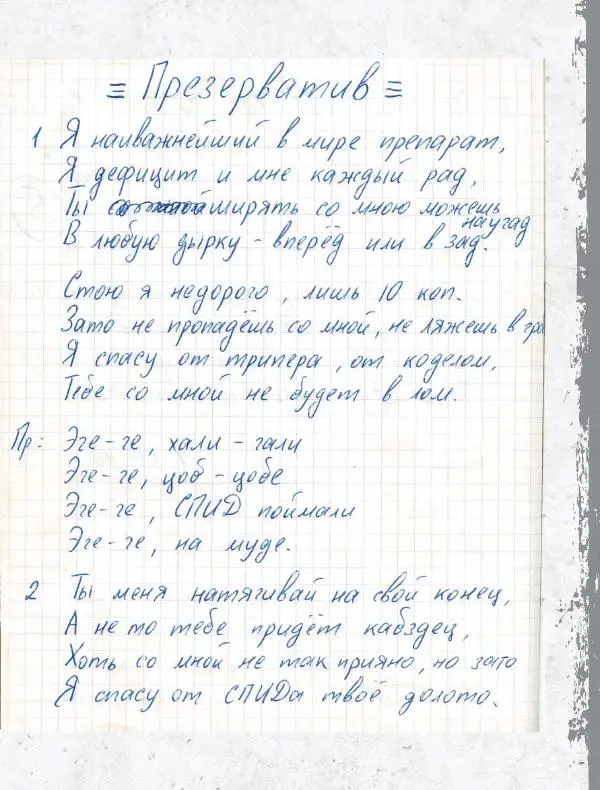 ≡ Презерватив ≡
1 Я наиважнейший в мире препарат,
Я дефицит и мне каждый рад,
Ты ширять со мною можешь наугад
В любую дырку - вперёд или в зад.
Стою я недорого, лишь 10 коп.
Зато не пропадёшь со мной, не ляжешь в гро
Я спасу от трипера, от коделом,
Тебе со мной не будет в лом.
Пр: Эге-ге, хали-гали
Эге-ге, цоб-цобе
Эге-ге, СПИД поймали
Эге-ге, на муде.
2 Ты меня натягивай на свой конец,
А не то тебе придёт кабздец,
Хоть со мной не так прияно, но зато
Я спасу от СПИДа твоё долото.